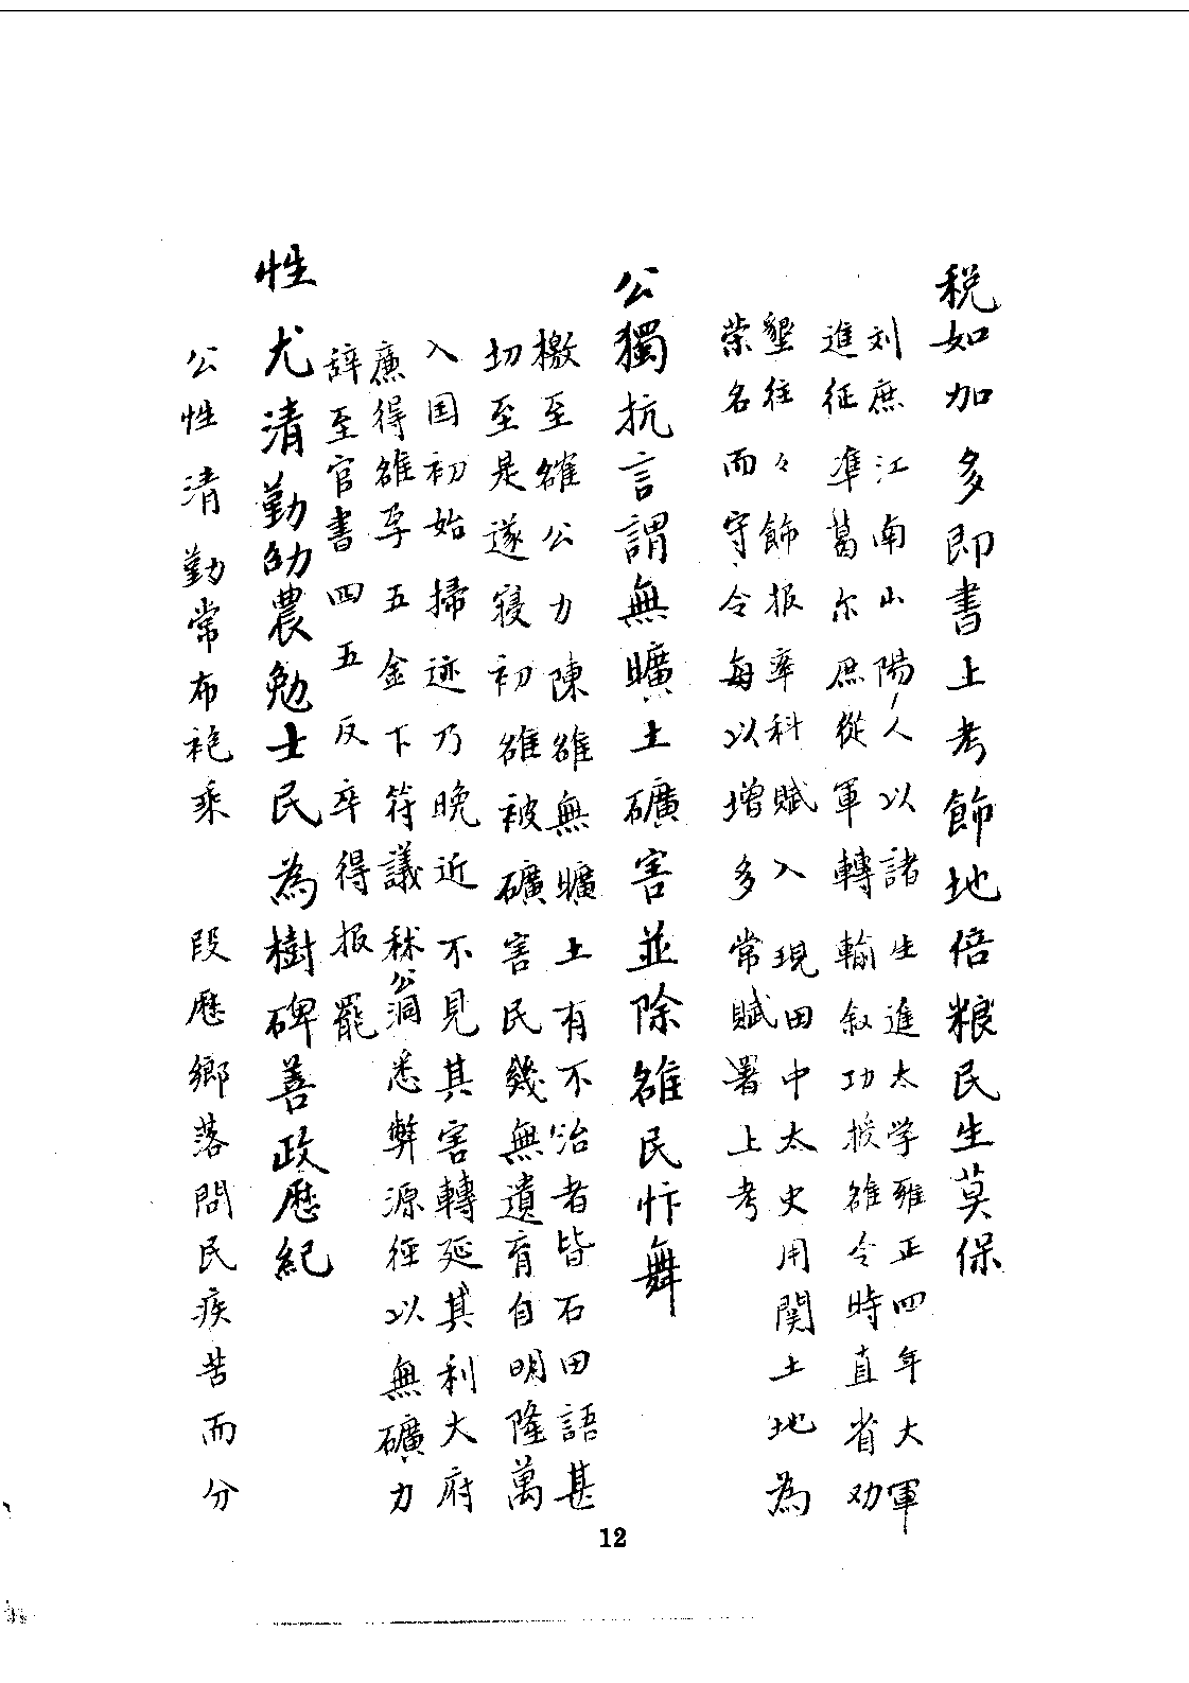 税如加多即書上考飾地倍粮民生莫保
刘庶江南山陽人以諸生進太学雍正四年大軍
進征凖葛尔庶從軍轉輸叙功授雒令時直省劝
墾往々飾报率科賦入現田中太史用関土地為
荣名而守令每以增多常賦署上考
公獨抗言謂無曠土礦害並除雒民忭舞
檄至雒公力陳雒無曠土有不治者皆石田語甚
切至是遂寝初雒被礦害民幾無遺育自明隆萬
入国初始掃迹乃晚近不見其害轉延其利大府
廉得雒孕五金下符議秝公洞悉弊源徑以無礦力
辞至官書四五反卒得报罷
性尤清勤劭農勉士民為樹碑善政歷紀
公性清勤常布袍乘 段歷鄉落問民疾苦而分
12